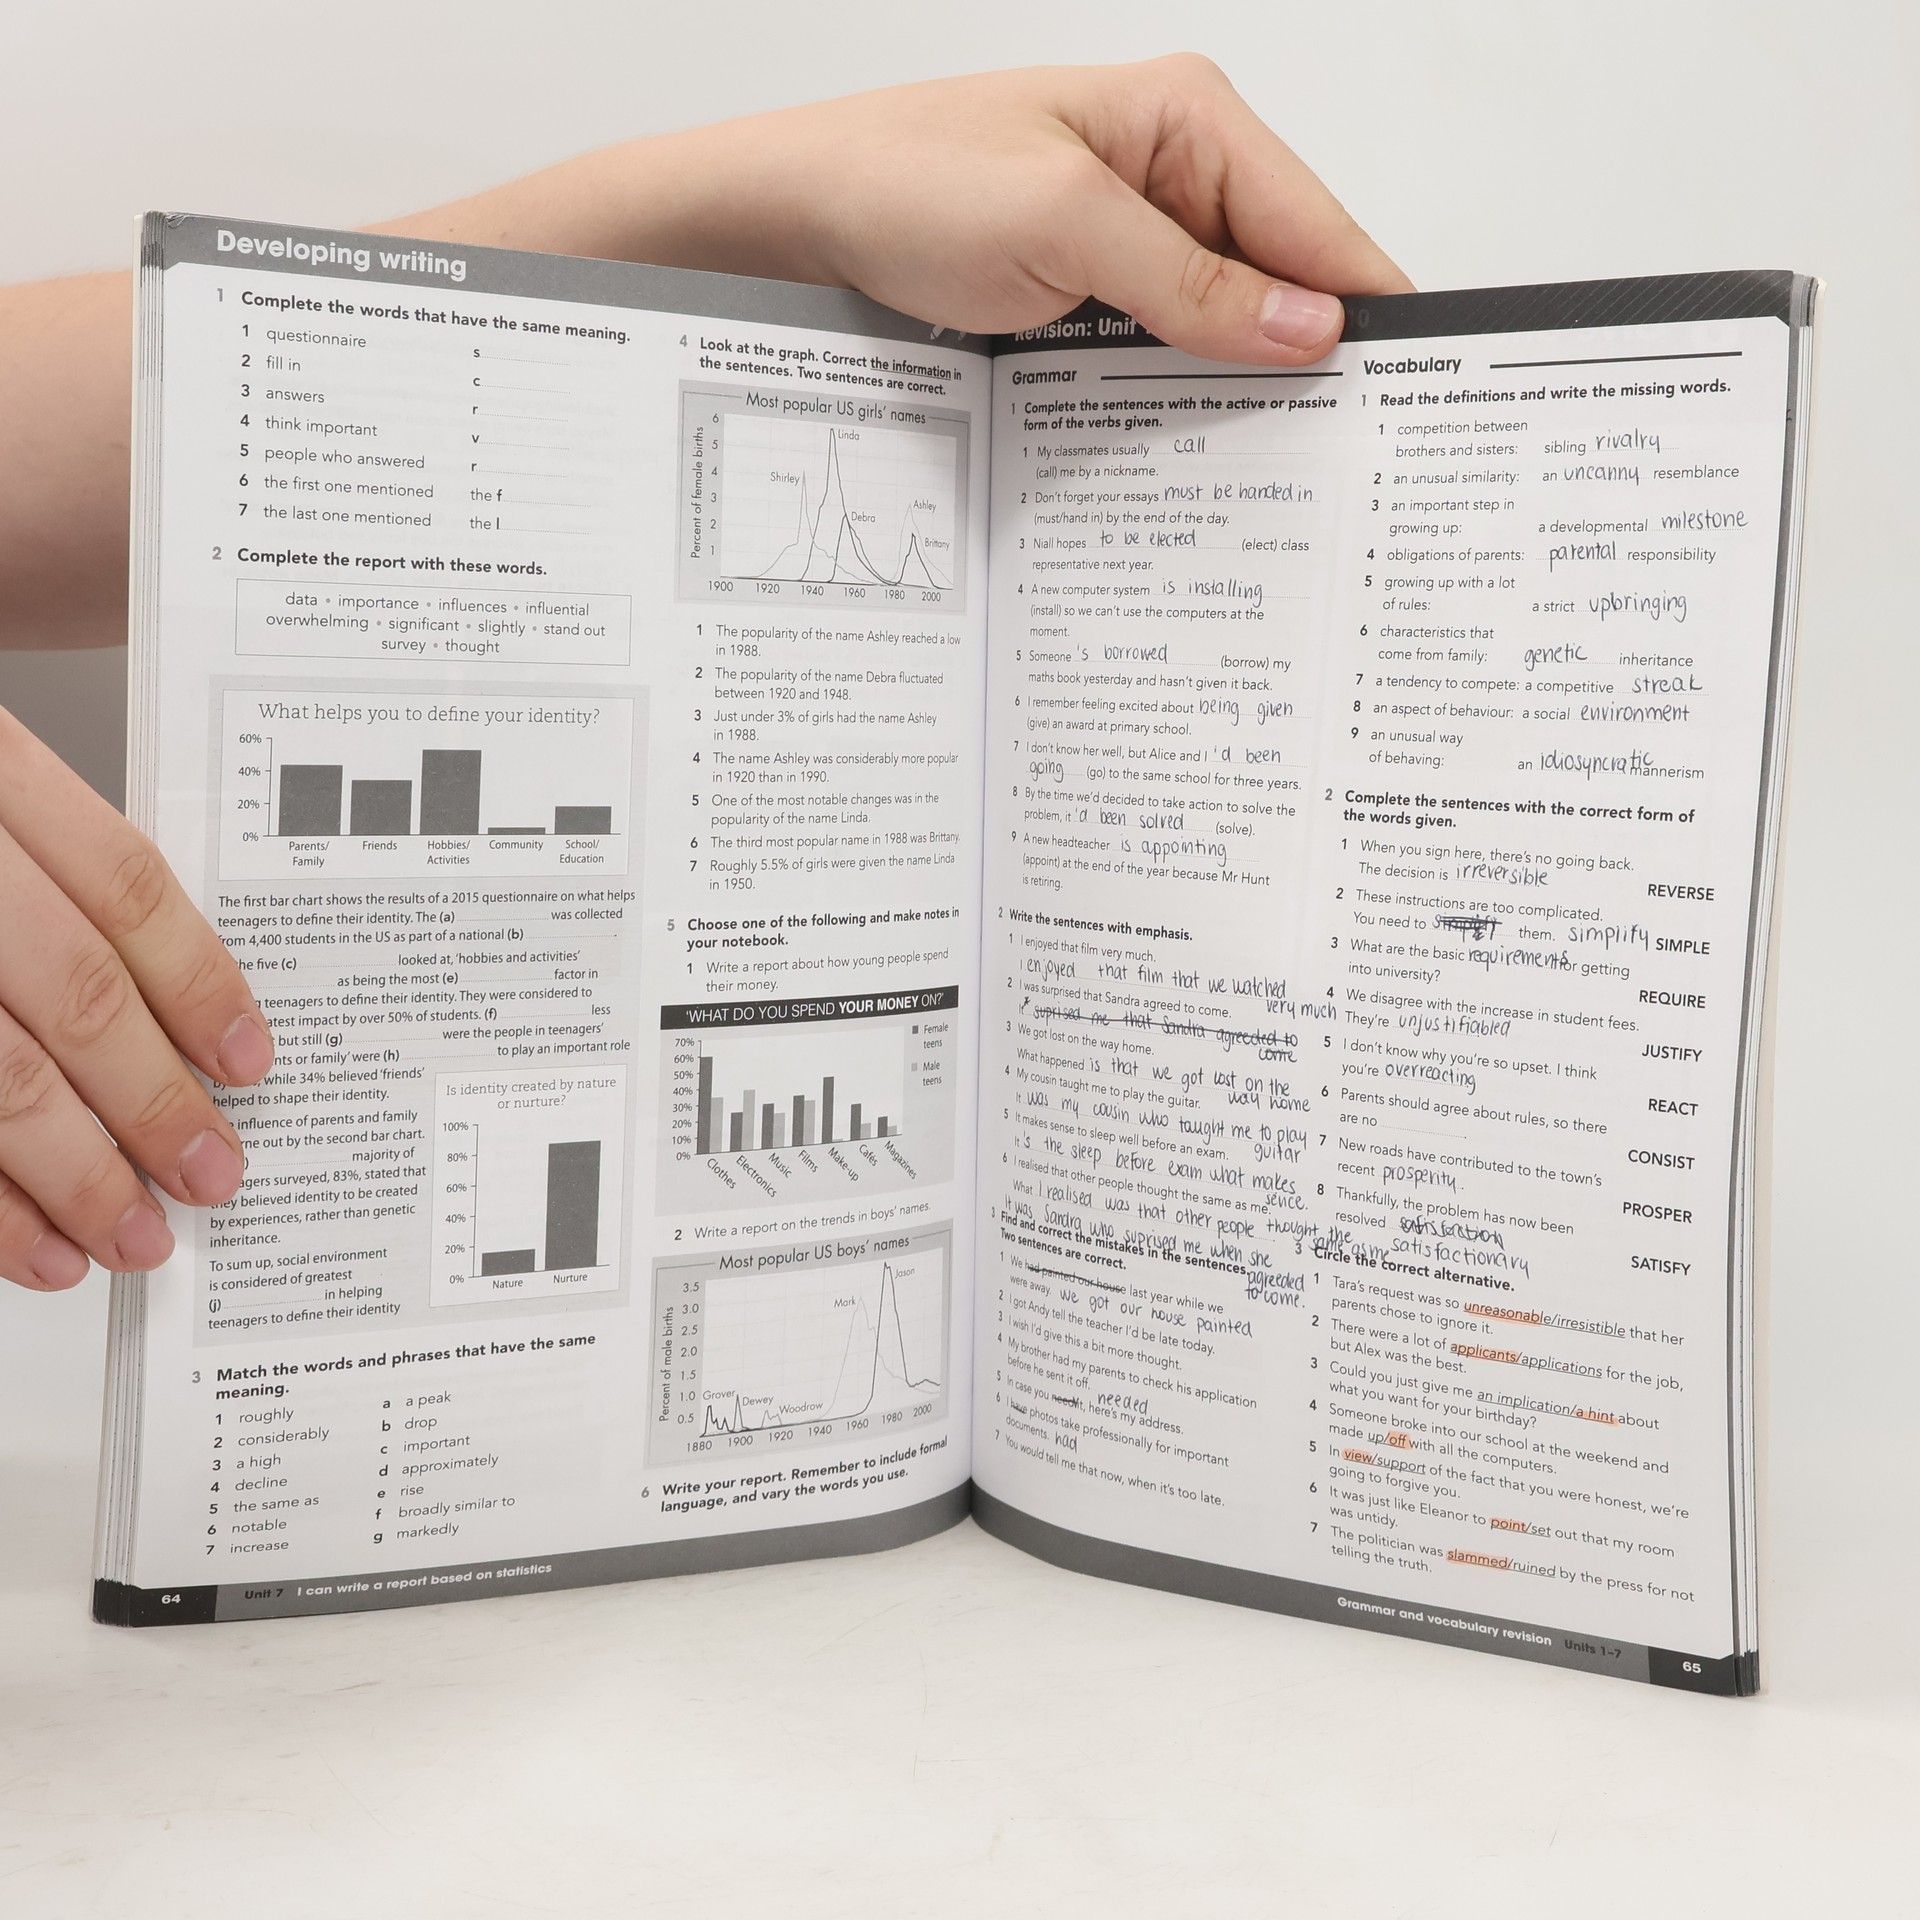 Developing writing
1 Complete the words that have the same meaning.
1 questionnaire s
2 fill in c
3 answers r
4 think important v
5 people who answered r
6 the first one mentioned the f
7 the last one mentioned the l
2 Complete the report with these words.
data • importance • influences • influential
overwhelming • significant • slightly • stand out
survey • thought
What helps you to define your identity?
60%
40%
20%
0%
Parents/ Family
Friends
Hobbies/ Activities
Community
School/ Education
The first bar chart shows the results of a 2015 questionnaire on what helps
teenagers to define their identity. The (a) was collected
from 4,400 students in the US as part of a national (b) .
he five (c) looked at, 'hobbies and activities'
as being the most (e) factor in
teenagers to define their identity. They were considered to
atest impact by over 50% of students. (f) less
but still (g) were the people in teenagers'
nts or family' were (h) to play an important role
, while 34% believed 'friends'
helped to shape their identity.
influence of parents and family
ne out by the second bar chart.
) majority of
agers surveyed, 83%, stated that
they believed identity to be created
by experiences, rather than genetic
inheritance.
To sum up, social environment
is considered of greatest
(j) in helping
teenagers to define their identity
Is identity created by nature
or nurture?
100%
80%
60%
40%
20%
0%
Nature
Nurture
3 Match the words and phrases that have the same
meaning.
1 roughly a a peak
2 considerably b drop
3 a high c important
4 decline d approximately
5 the same as e rise
6 notable f broadly similar to
7 increase g markedly
64 Unit 7 I can write a report based on statistics
4 Look at the graph. Correct the information in
the sentences. Two sentences are correct.
Most popular US girls' names
Percent of female births
6
5
4
3
2
1
Linda
Shirley
Debra
Ashley
Brittany
1900 1920 1940 1960 1980 2000
1 The popularity of the name Ashley reached a low
in 1988.
2 The popularity of the name Debra fluctuated
between 1920 and 1948.
3 Just under 3% of girls had the name Ashley
in 1988.
4 The name Ashley was considerably more popular
in 1920 than in 1990.
5 One of the most notable changes was in the
popularity of the name Linda.
6 The third most popular name in 1988 was Brittany.
7 Roughly 5.5% of girls were given the name Linda
in 1950.
5 Choose one of the following and make notes in
your notebook.
1 Write a report about how young people spend
their money.
'WHAT DO YOU SPEND YOUR MONEY ON?'
Female teens
Male teens
70%
60%
50%
40%
30%
20%
10%
0%
Clothes
Electronics
Music
Films
Make-up
Cafés
Magazines
2 Write a report on the trends in boys' names.
Most popular US boys' names
Percent of male births
3.5
3.0
2.5
2.0
1.5
1.0
0.5
Jason
Mark
Grover
Dewey
Woodrow
1880 1900 1920 1940 1960 1980 2000
6 Write your report. Remember to include formal
language, and vary the words you use.
Revision: Unit
Grammar
1 Complete the sentences with the active or passive
form of the verbs given.
1 My classmates usually call
(call) me by a nickname.
2 Don't forget your essays must be handed in
(must/hand in) by the end of the day.
3 Niall hopes to be elected (elect) class
representative next year.
4 A new computer system is installing
(install) so we can't use the computers at the
moment.
5 Someone 's borrowed (borrow) my
maths book yesterday and hasn't given it back.
6 I remember feeling excited about being given
(give) an award at primary school.
7 I don't know her well, but Alice and I 'd been
going (go) to the same school for three years.
8 By the time we'd decided to take action to solve the
problem, it 'd been solved (solve).
9 A new headteacher is appointing
(appoint) at the end of the year because Mr Hunt
is retiring.
2 Write the sentences with emphasis.
1 I enjoyed that film very much.
I enjoyed that film that we watched
very much
2 I was surprised that Sandra agreed to come.
It suprised me that Sandra agreeded to
come
3 We got lost on the way home.
What happened is that we got lost on the
way home
4 My cousin taught me to play the guitar.
It was my cousin who taught me to play
guitar
5 It makes sense to sleep well before an exam.
It's the sleep before exam what makes
sence.
6 I realised that other people thought the same as me.
What I realised was that other people thought the
same as me
It was Sandra who suprised me when she
agreeded
to come.
3 Find and correct the mistakes in the sentences.
Two sentences are correct.
1 We had painted our house last year while we
were away. we got our house painted
2 I got Andy tell the teacher I'd be late today.
3 I wish I'd give this a bit more thought.
4 My brother had my parents to check his application
before he sent it off. needed
5 In case you needit, here's my address.
6 I have photos take professionally for important
documents. had
7 You would tell me that now, when it's too late.
Vocabulary
1 Read the definitions and write the missing words.
1 competition between
brothers and sisters: sibling rivalry
2 an unusual similarity: an uncanny resemblance
3 an important step in
growing up: a developmental milestone
4 obligations of parents: parental responsibility
5 growing up with a lot
of rules: a strict upbringing
6 characteristics that
come from family: genetic inheritance
7 a tendency to compete: a competitive streak
8 an aspect of behaviour: a social environment
9 an unusual way
of behaving: an idiosyncratic mannerism
2 Complete the sentences with the correct form of
the words given.
1 When you sign here, there's no going back.
The decision is irreversible REVERSE
2 These instructions are too complicated.
You need to them. simplify SIMPLE
3 What are the basic requirements for getting
into university? REQUIRE
4 We disagree with the increase in student fees.
They're unjustifiabled JUSTIFY
5 I don't know why you're so upset. I think
you're overreacting REACT
6 Parents should agree about rules, so there
are no . CONSIST
7 New roads have contributed to the town's
recent prosperity. PROSPER
8 Thankfully, the problem has now been
resolved satisfaction
satisfactionary SATISFY
3 Circle the correct alternative.
1 Tara's request was so unreasonable/irresistible that her
parents chose to ignore it.
2 There were a lot of applicants/applications for the job,
but Alex was the best.
3 Could you just give me an implication/a hint about
what you want for your birthday?
4 Someone broke into our school at the weekend and
made up/off with all the computers.
5 In view/support of the fact that you were honest, we're
going to forgive you.
6 It was just like Eleanor to point/set out that my room
was untidy.
7 The politician was slammed/ruined by the press for not
telling the truth.
Grammar and vocabulary revision Units 1–7 65